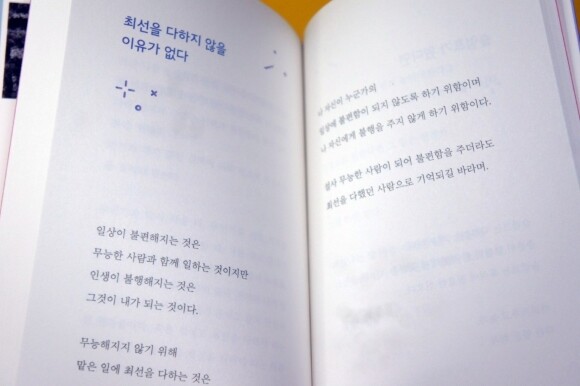 최선을 다하지 않을
이유가 없다
일상이 불편해지는 것은
무능한 사람과 함께 일하는 것이지만
인생이 불행해지는 것은
그것이 내가 되는 것이다.
무능해지지 않기 위해
맡은 일에 최선을 다하는 것은
나 자신이 누군가의
일상에 불편함이 되지 않도록 하기 위함이며
나 자신에게 불행을 주지 않게 하기 위함이다.
설사 무능한 사람이 되어 불편함을 주더라도
최선을 다했던 사람으로 기억되길 바라며.